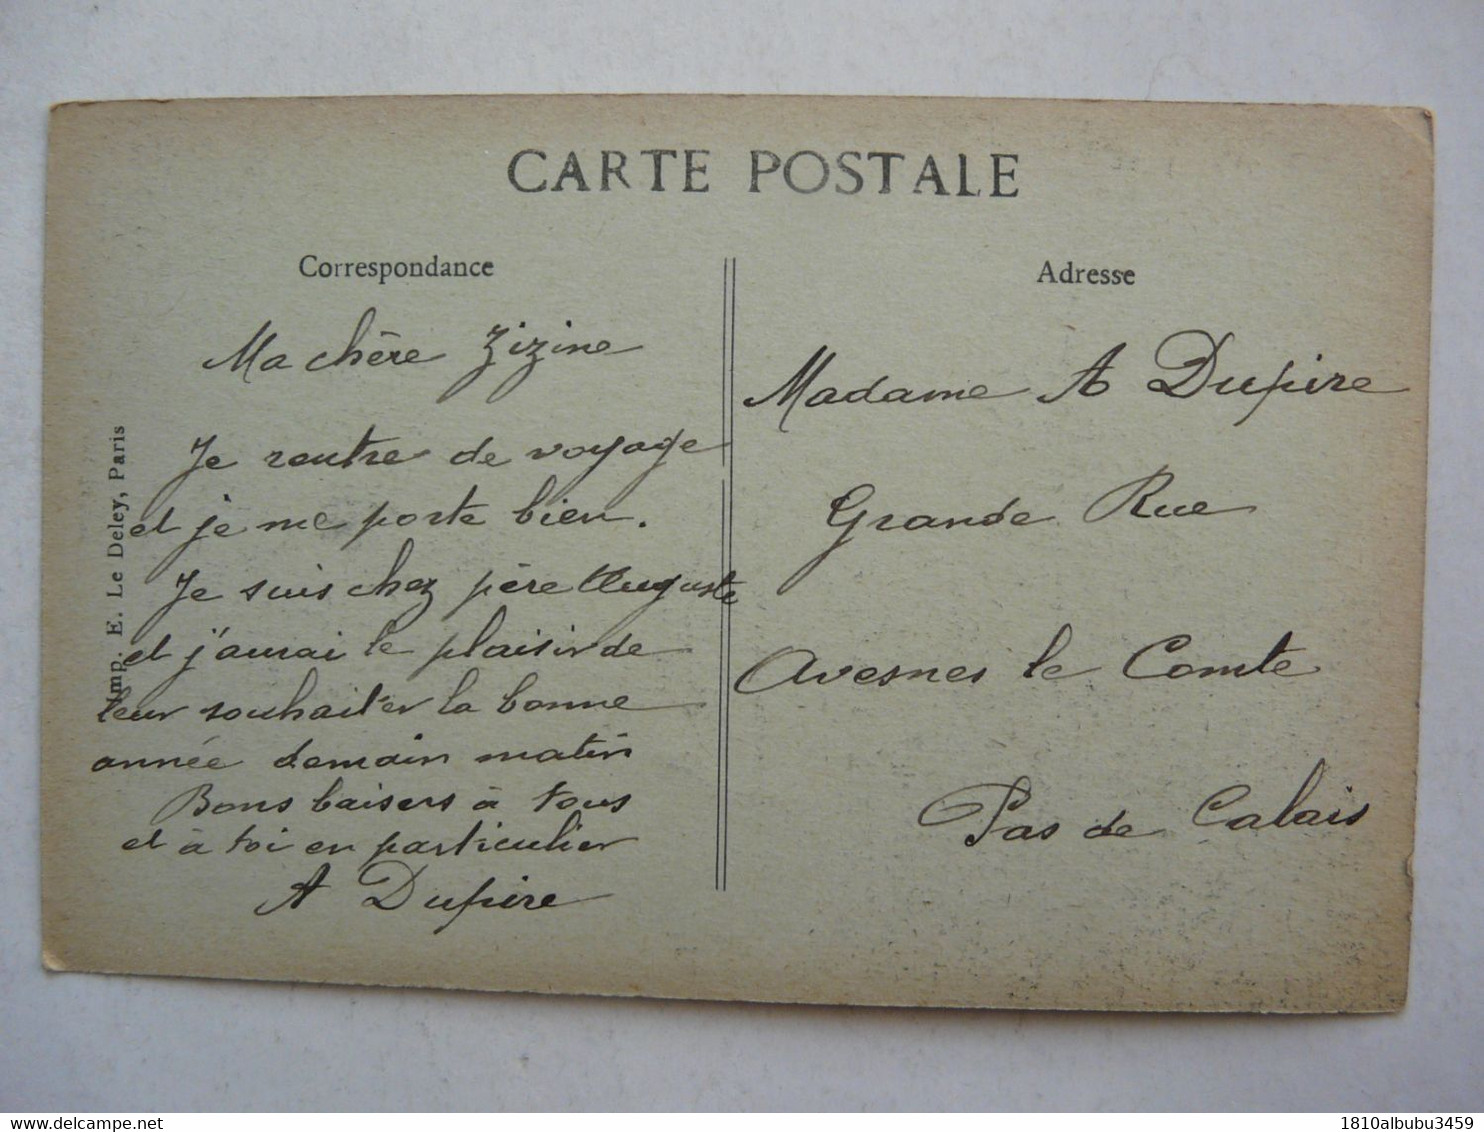 CARTE POSTALE
Correspondance
Ma chère Zizine
Je rentre de voyage
et je me porte bien.
Je suis chez père Auguste
et j'aurai le plaisir de
leur souhaiter la bonne
année demain matin
Bons baisers à tous
et à toi en particulier
A Dupire
Imp. E. Le Deley, Paris
Adresse
Madame A Dupire
Grande Rue
Avesnes le Comte
Pas de Calais
www.delcampe.net
1810albubu3459